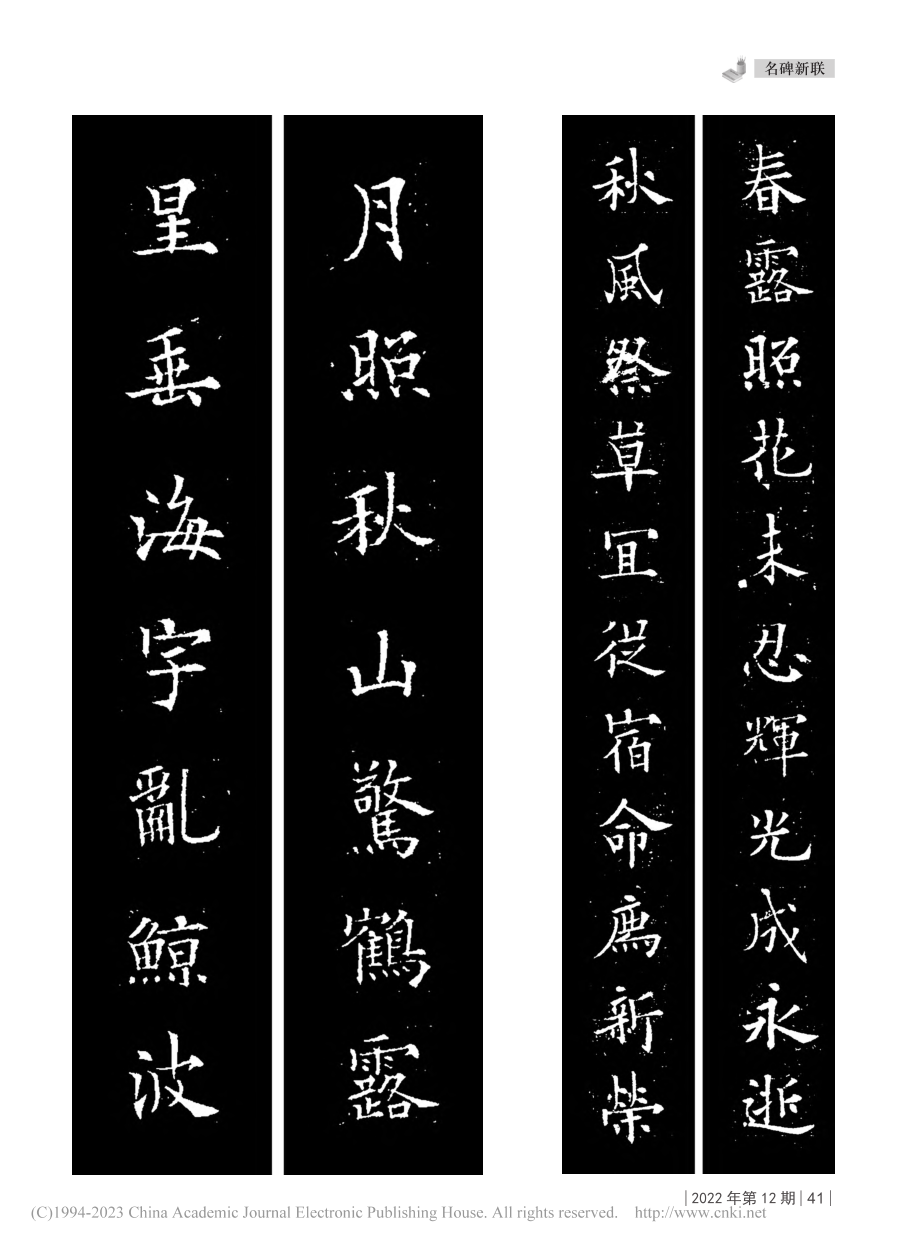 名碑新联
春露照花未忍輝光成永逝
秋風祭草宜從宿命薦新榮
月照秋山驚鶴露
星垂海字亂鯨波
2022年第12期 41
(C)1994-2023 China Academic Journal Electronic Publishing House. All rights reserved. http://www.cnki.net